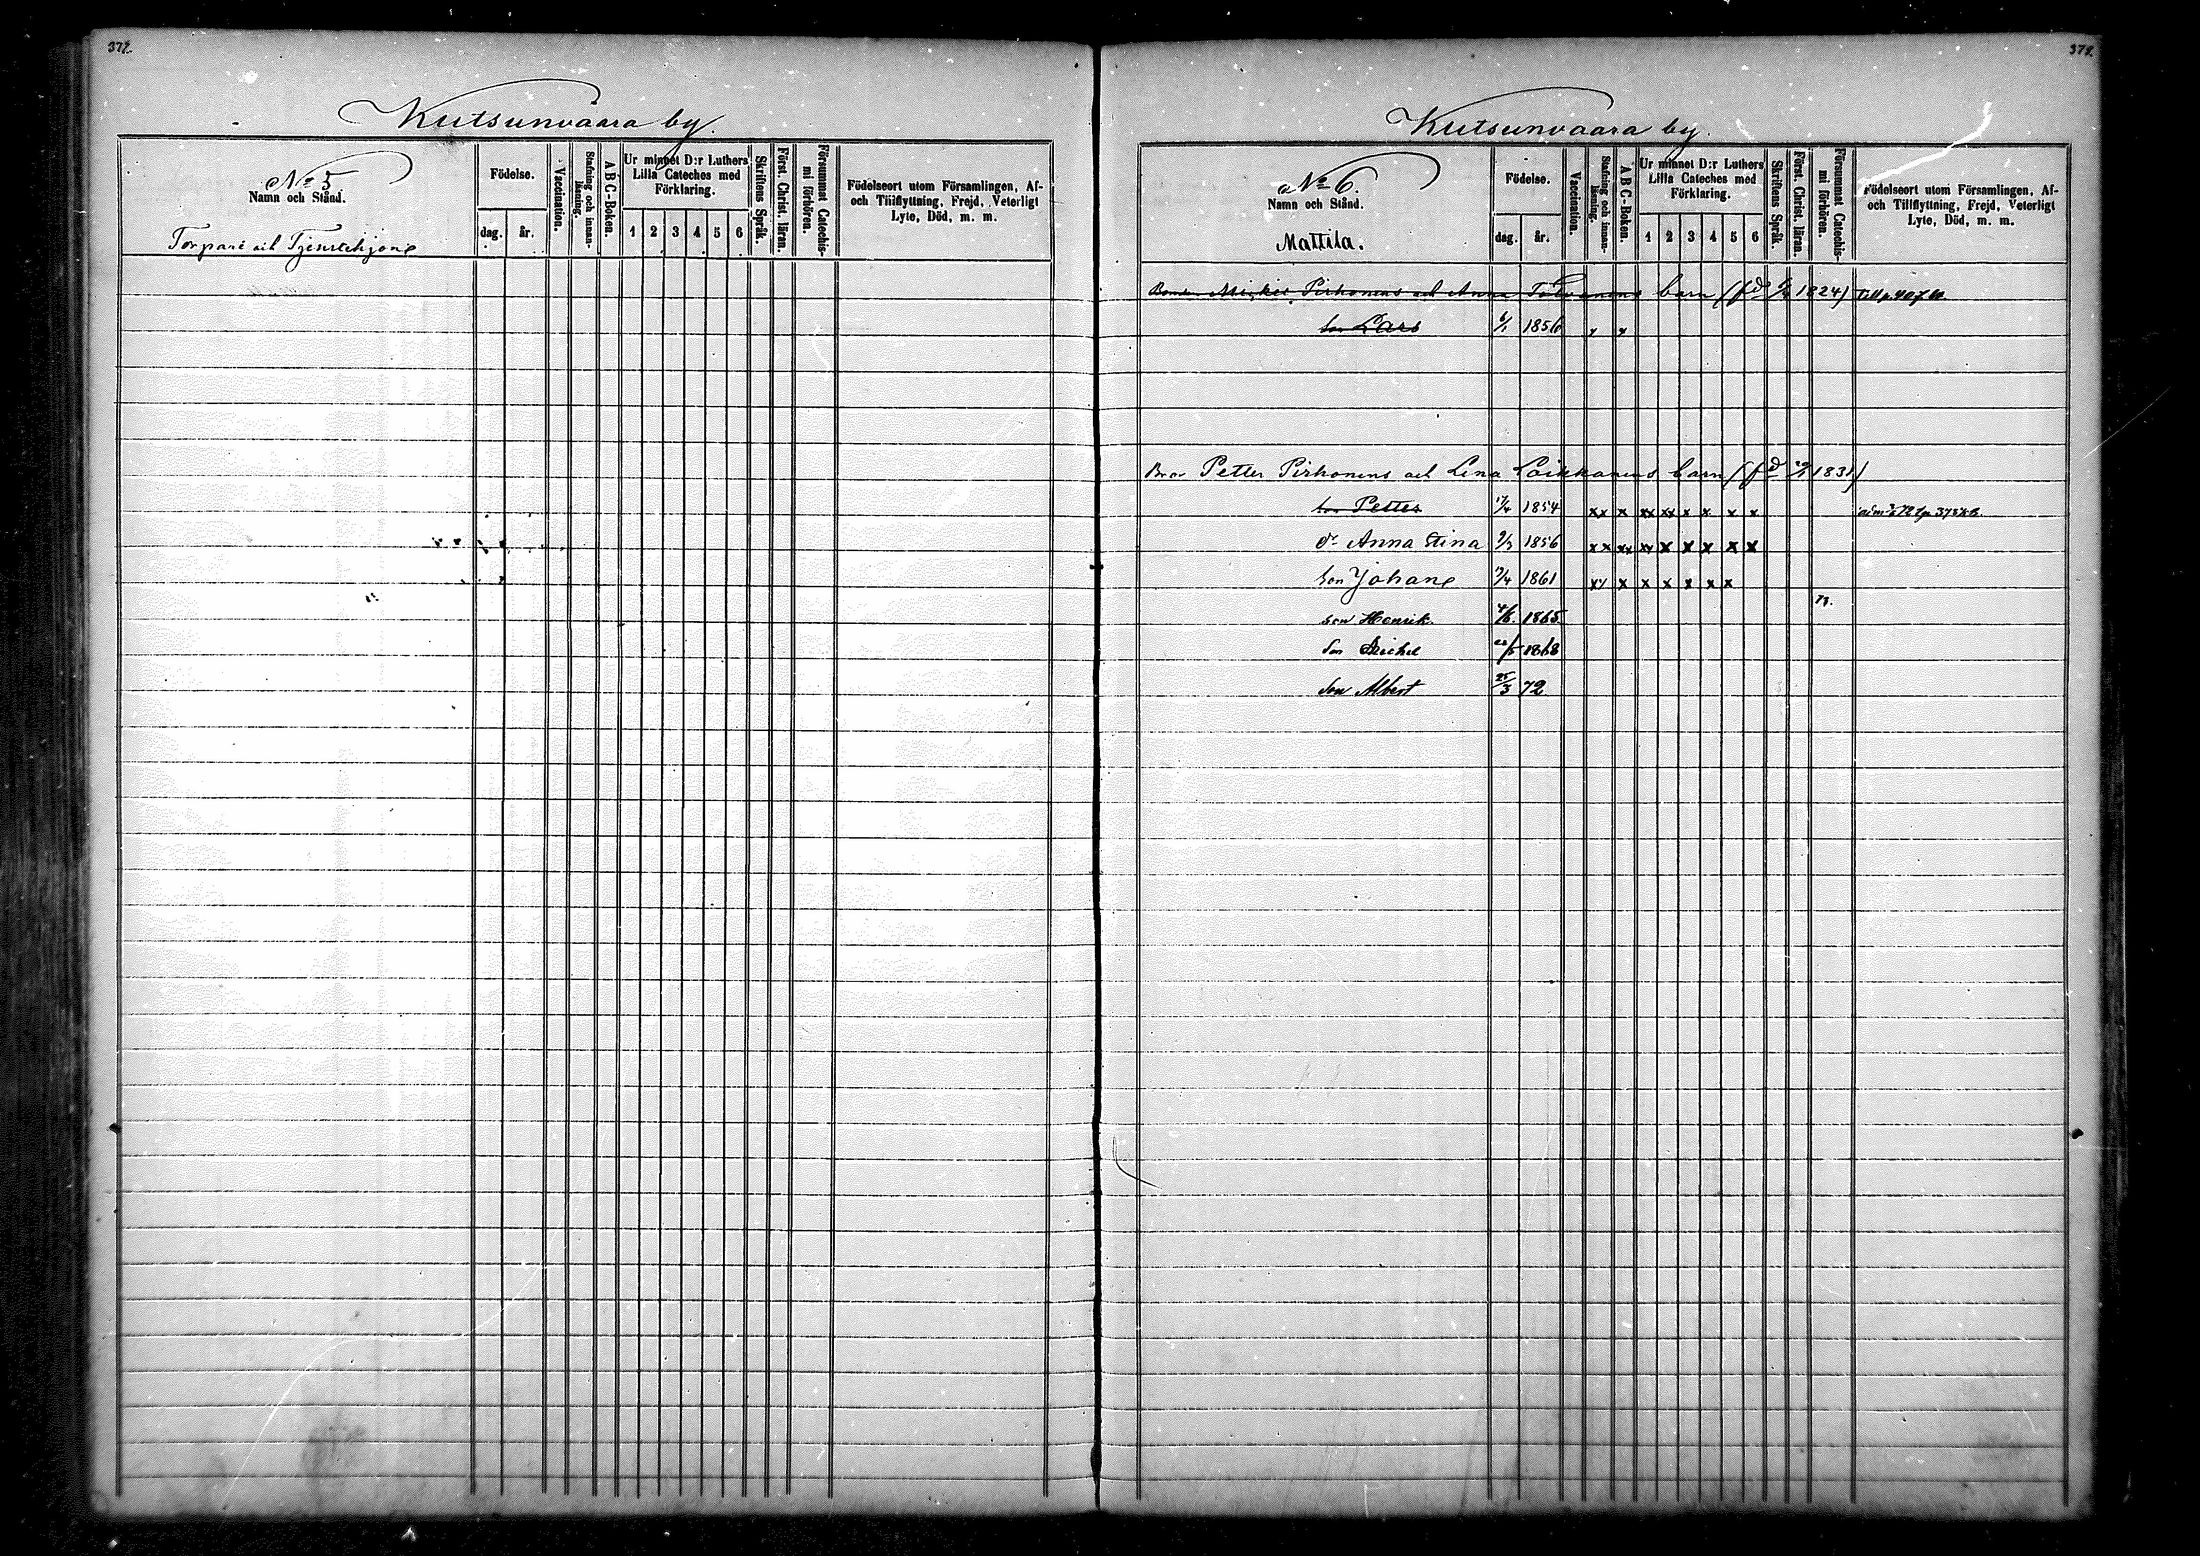 377.
Kutsunvaara by.
No 5
Namn och Stånd.
Födelse.
dag.
år.
Vaccination.
Stafning och innan-
läsning.
A B C-Boken.
Ur minnet D:r Luthers
Lilla Cateches med
Förklaring.
1 2 3 4 5 6
Skriftens Språk.
Först. Christ. läran.
Försummat Catechis-
mi förhören.
Födelseort utom Församlingen, Af-
och Tillflyttning, Frejd, Veterligt
Lyte, Död, m. m.
Torpare och Tjenstehjone
378.
Kutsunvaara by.
No 6.
Namn och Stånd.
Mattila.
Födelse.
dag.
år.
Vaccination.
Stafning och innan-
läsning.
A B C-Boken.
Ur minnet D:r Luthers
Lilla Cateches med
Förklaring.
1 2 3 4 5 6
Skriftens Språk.
Först. Christ. läran.
Försummat Catechis-
mi förhören.
Födelseort utom Församlingen, Af-
och Tillflyttning, Frejd, Veterligt
Lyte, Död, m. m.
Pirhonens och Anna Tolvanens barn (fd 1824)
son Lars 6/1 1856 x x
Bror Petter Pirhonens och Lina Loikkanens barn (fd 1831)
son Petter 17/4 1854 xx x xx xx x x x x
dr Anna Stina 9/3 1856 xx xx xx x x x x x
son Johan 1861 xx x x x x x x
73.
son Henrik 4/6. 1865
son Michel 1868
son Albert 25/3 72